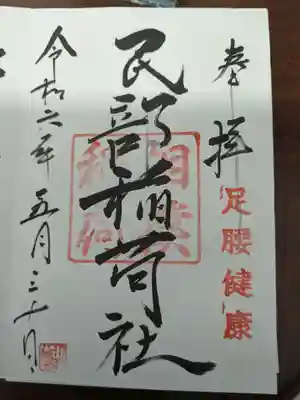 奉拝
足腰健康
民部稲荷社
相撲
稲荷
令和六年五月三十日